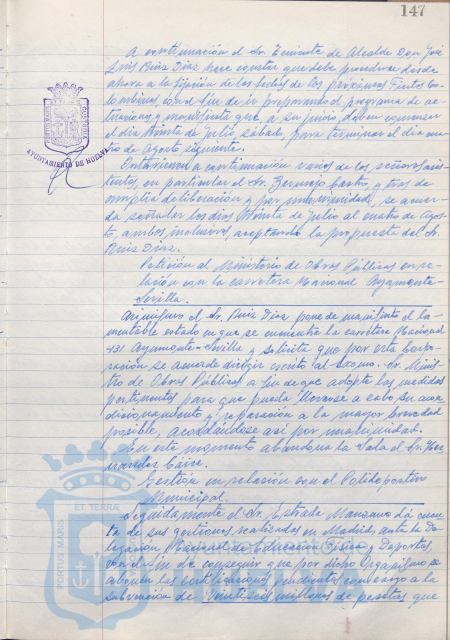 147
A continuación el Sr. Teniente de Alcalde Don José
Luis Ruiz Díaz hace constar que debe procederse desde
ahora a la fijación de las fechas de las próximas Fiestas Co-
lombinas, con el fin de ir preparando el programa de ac-
tuaciones y manifiesta que, a su juicio, deben comenzar
el día treinta de Julio, sábado, para terminar el día cua-
tro de Agosto siguiente.
AYUNTAMIENTO DE HUELVA
Intervienen a continuación varios de los señores asis-
tentes, en particular el Sr. Bermejo Castro, y tras de
amplia deliberación y por unanimidad, se acuer-
da señalar los días treinta de Julio al cuatro de Agos-
to, ambos inclusives, aceptando la propuesta del Sr.
Ruiz Díaz.
Petición al Ministerio de Obras Públicas en re-
lación con la carretera Nacional Ayamonte-
Sevilla.
Asimismo el Sr. Ruiz Díaz pone de manifiesto el la-
mentable estado en que se encuentra la carretera Nacional
431 Ayamonte-Sevilla y solicita que por esta Corpo-
ración se acuerde dirigir escrito al Excmo. Sr. Minis-
tro de Obras Públicas a fin de que adopte las medidas
pertinentes para que pueda llevarse a cabo su acon-
dicionamiento y reparación a la mayor brevedad
posible, acordándose así por unanimidad.
En este momento abandona la Sala el Sr. Her-
nández Cálvez.
Gestión en relación con el Polideportivo
Municipal.
Seguidamente el Sr. Estrade Manzano dá cuen-
ta de sus gestiones realizadas en Madrid, ante la De-
legación Nacional de Educación Física y Deportes,
con el fin de conseguir que por dicho Organismo se
abonen las certificaciones pendientes con cargo a la
subvención de Veintiseis millones de pesetas que
PORTUS MARIS ET TERRAE